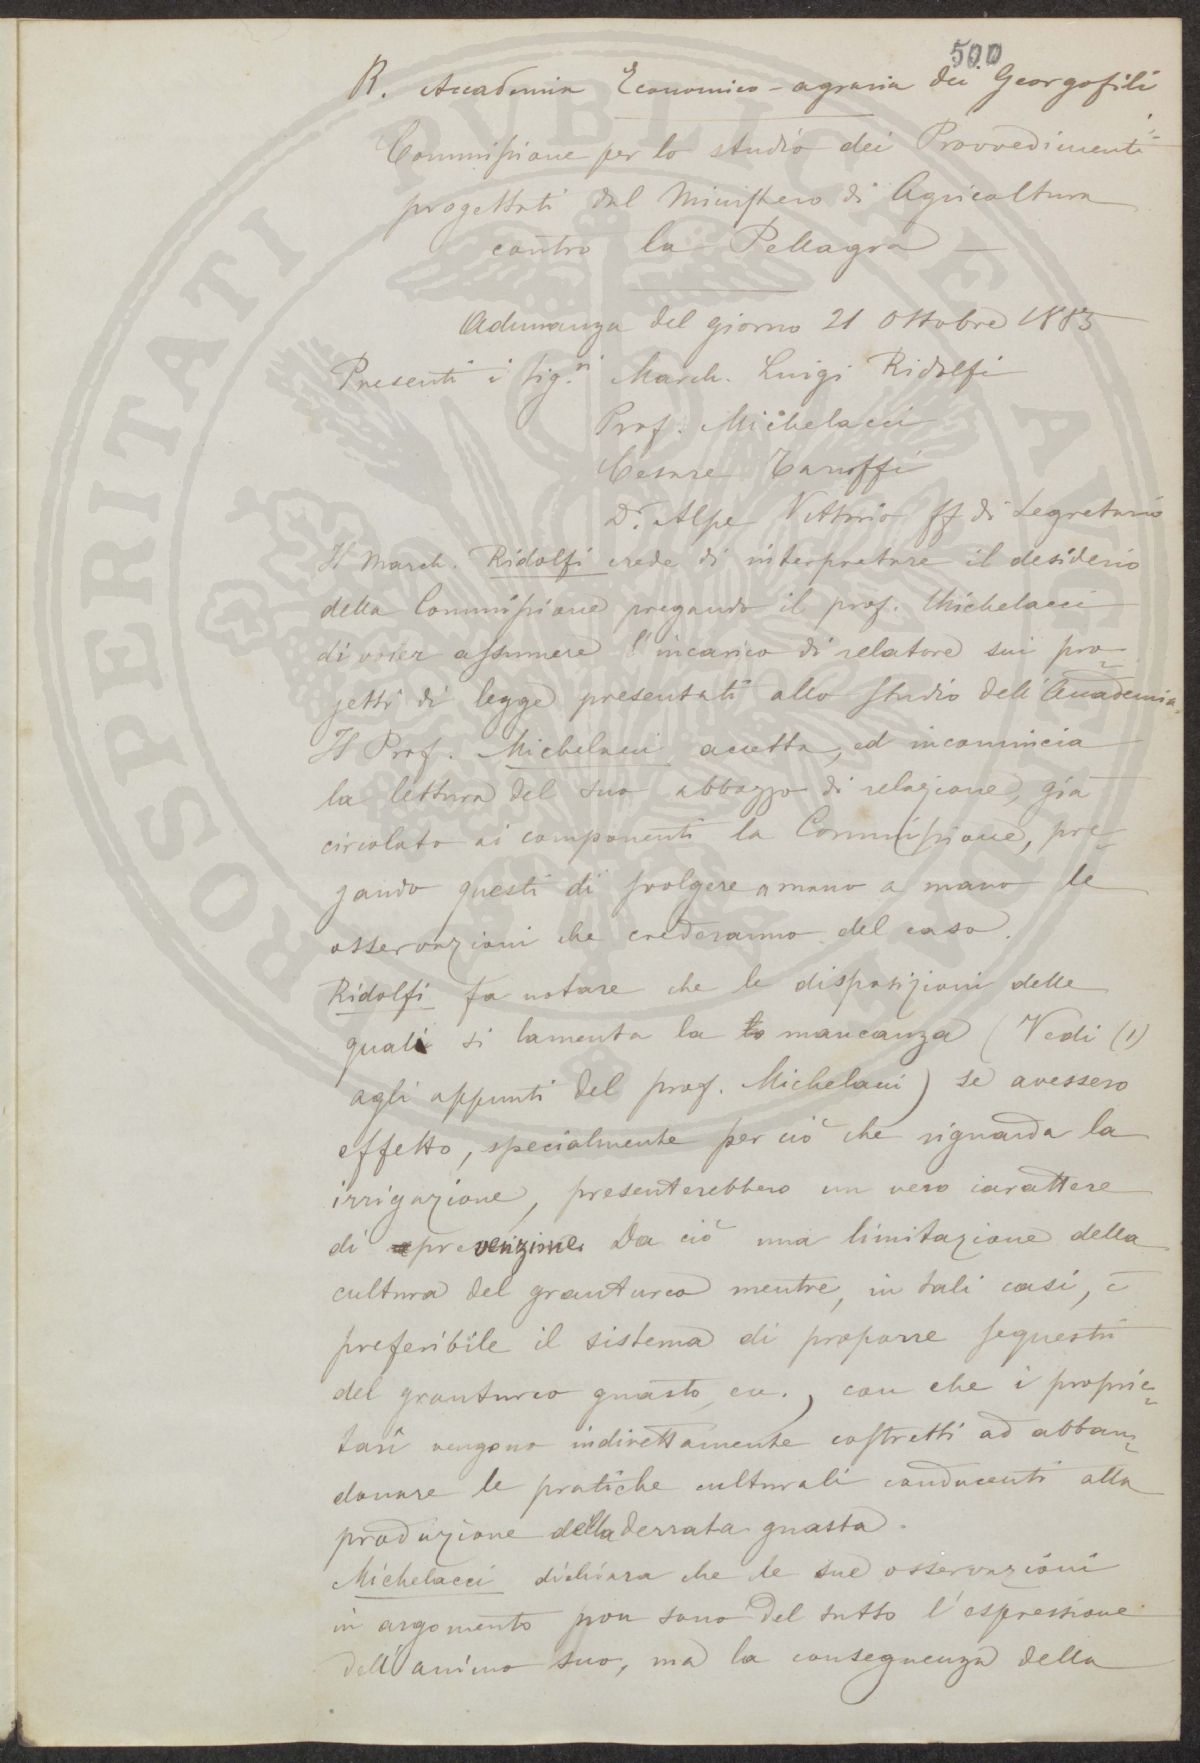 500
R. Accademia Economico-agraria dei Georgofili
Commissione per lo studio dei Provvedimenti
progettati dal Ministero di Agricoltura
contro la Pellagra —
Adunanza del giorno 21 Ottobre 1885
Presenti i Sig.ri March. Luigi Ridolfi
Prof. Michelacci
Cesare Taruffi
Dr. Alpe Vittorio ff di Segretario
Il March. Ridolfi crede di interpretare il desiderio
della Commissione pregando il prof. Michelacci
di voler assumere l'incarico di relatore sui pro=
getti di legge presentati allo studio dell'Accademia.
Il Prof. Michelacci accetta, ed incomincia
la lettura del suo abbozzo di relazione, già
circolato ai componenti la Commissione, pre=
gando questi di svolgere a mano a mano le
osservazioni che crederanno del caso.
Ridolfi fa notare che le disposizioni delle
quali si lamenta la mancanza (Vedi (1)
agli appunti del prof. Michelacci) se avessero
effetto, specialmente per ciò che riguarda la
irrigazione, presenterebbero un vero carattere
di prevenzione. Da ciò una limitazione della
cultura del granturco mentre, in tali casi, è
preferibile il sistema di proporre sequestri
del granturco guasto, ecc., con che i proprie=
tari vengono indirettamente costretti ad abban=
donare le pratiche culturali conducenti alla
produzione della derrata guasta.
Michelacci dichiara che le sue osservazioni
in argomento non sono del tutto l'espressione
dell'animo suo, ma la conseguenza della
PROSPERITATI PUBLICAE AVGENDAE